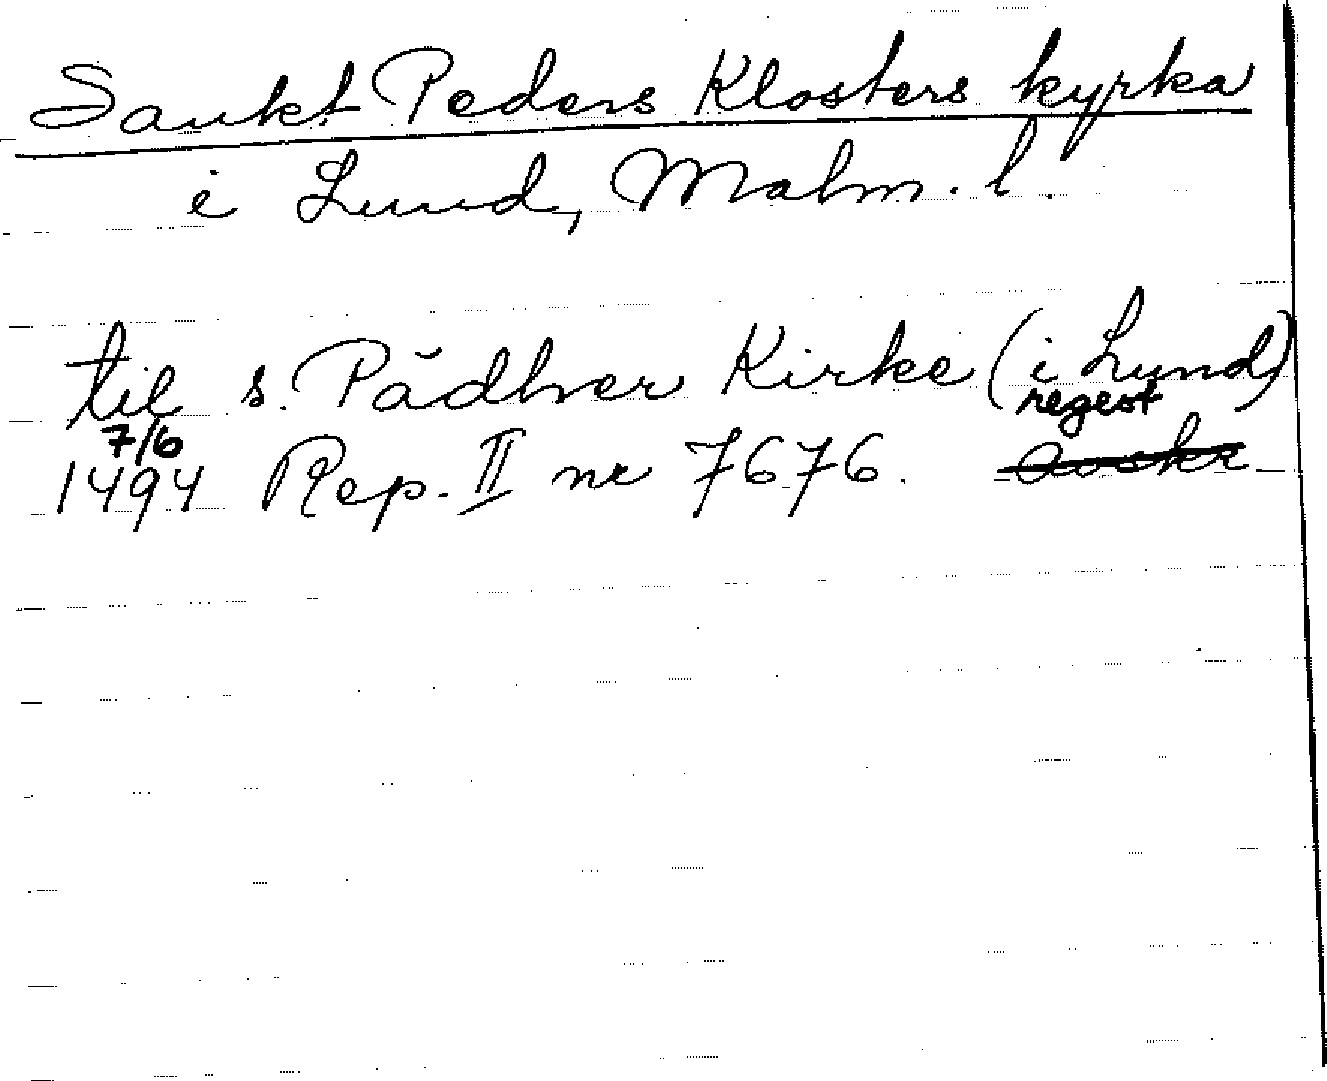 Sankt Peders Klosters kyrka
i Lund, Malm. l.
til s. Pädher Kirke (i Lund)
regest
7/6
1494 Rep. II nr 7676. avskr